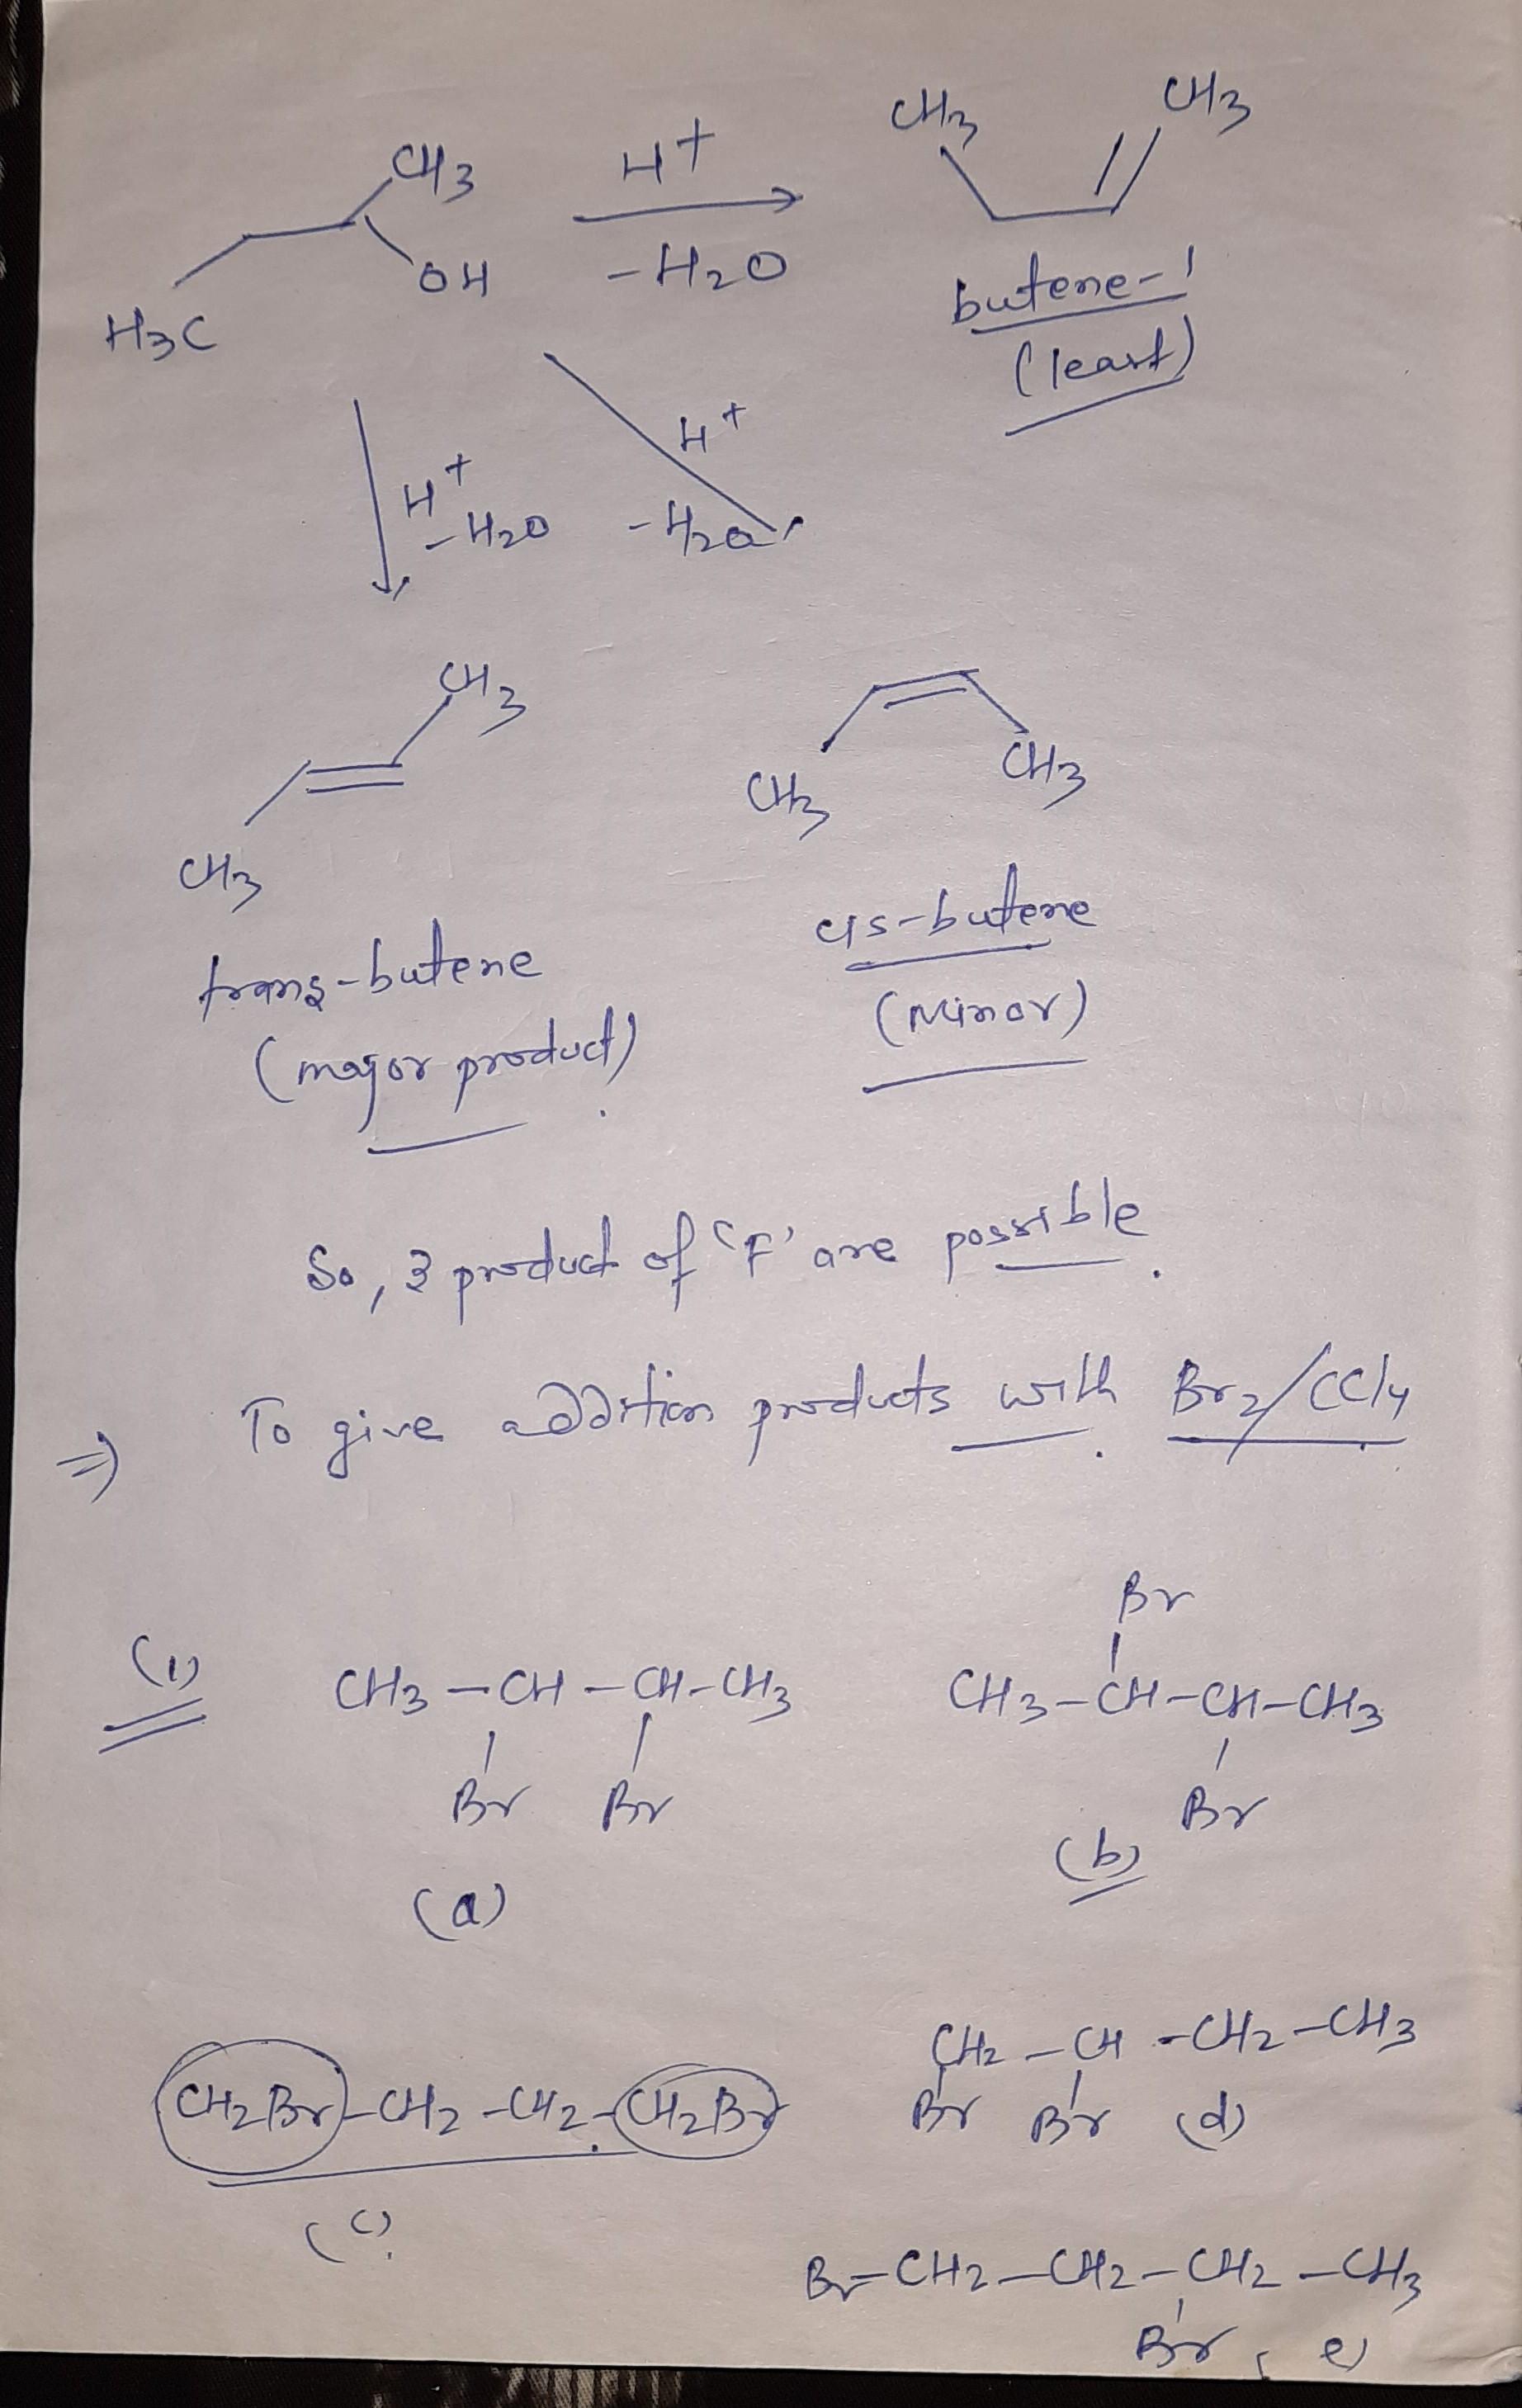 CH3
CH3
CH3
H+
-H2O
OH
H3C
butene-1
(least)
H+
-H2O
H+
-H2O
CH3
CH3
CH3
CH3
trans-butene
(major product)
cis-butene
(Minor)
So, 3 product of 'F' are possible.
=> To give addition products with. Br2/CCl4
(1)
CH3-CH-CH-CH3
Br Br
(a)
Br
CH3-CH-CH-CH3
Br
(b)
CH2Br-CH2-CH2-CH2Br
(c)
CH2-CH-CH2-CH3
Br Br (d)
Br-CH2-CH2-CH2-CH3
Br, e)